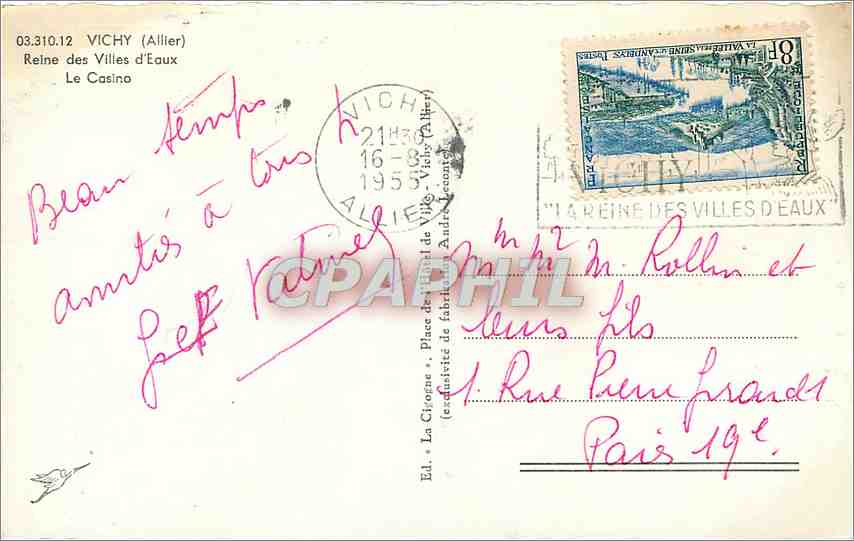 03.310.12 VICHY (Allier)
Reine des Villes d'Eaux
Le Casino
Beau temps
amitiés à tous
VICHY
21H30
16-8
1955
ALLIER
Ed. « La Cigogne ». Place de l'Hôtel de Ville - Vichy (Allier)
(exclusivité de fabrication André Leconte)
8F
POSTES
LA VALLÉE DE LA SEINE AUX ANDELYS
REPUBLIQUE FRANÇAISE
VICHY
"LA REINE DES VILLES D'EAUX"
CPAPHIL
M. Rollin et
leurs fils
1. Rue Pierre Girard
Paris 19e